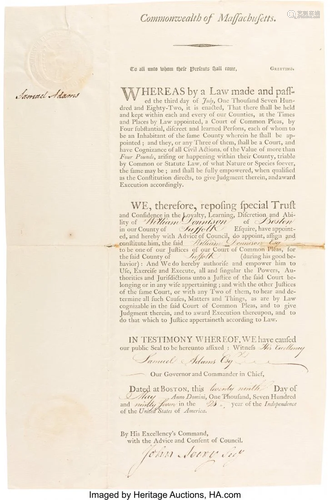 Commonwealth of Massachusetts.
Samuel Adams
To all unto whom these Presents shall come, GREETING.
WHEREAS by a Law made and passed
the third day of July, One Thousand Seven Hundred
and Eighty-Two, it is enacted, That there shall be held
and kept within each and every of our Counties, at the Times
and Places by Law appointed, a Court of Common Pleas, by
Four substantial, discreet and learned Persons, each of whom to
be an Inhabitant of the same County wherein he shall be appointed;
and they, or any Three of them, shall be a Court, and
have Cognizance of all Civil Actions, of the Value of more than
Four Pounds, arising or happening within their County, triable
by Common or Statute Law, of what Nature or Species soever,
the same may be; and shall be fully empowered, when qualified
as the Constitution directs, to give Judgment therein, and award
Execution accordingly.
WE, therefore, reposing special Trust
and Confidence in the Loyalty, Learning, Discretion and Ability
of William Boston
in our County of Suffolk Esquire, have appointed,
and hereby with Advice of Council, do appoint, assign and
constitute him, the said William Esq
to be one of our Justices of our Court of Common Pleas, for
the said County of Suffolk (during his good
behavior): And We do hereby authorise and empower him to
Use, Exercise and Execute, all and singular the Powers, Authorities
and Jurisdictions unto a Justice of the said Court belonging
or in any wise appertaining; and with the other Justices
of the same Court, or with any Two of them, to hear and determine
all such Causes, Matters and Things, as are by Law
cognizable in the said Court of Common Pleas, and to give
Judgment therein, and to award Execution thereupon, and to
do that which to Justice appertaineth according to Law.
IN TESTIMONY WHEREOF, We have caused
our public Seal to be hereunto affixed: Witness His Excellency
Samuel Adams Esq
Our Governor and Commander in Chief,
Dated at BOSTON, this twenty ninth Day of
May Anno Domini, One Thousand, Seven Hundred
and ninety four in the year of the Independence
of the United States of America.
By His Excellency's Command,
with the Advice and Consent of Council.
John Avery
Imaged by Heritage Auctions, HA.com